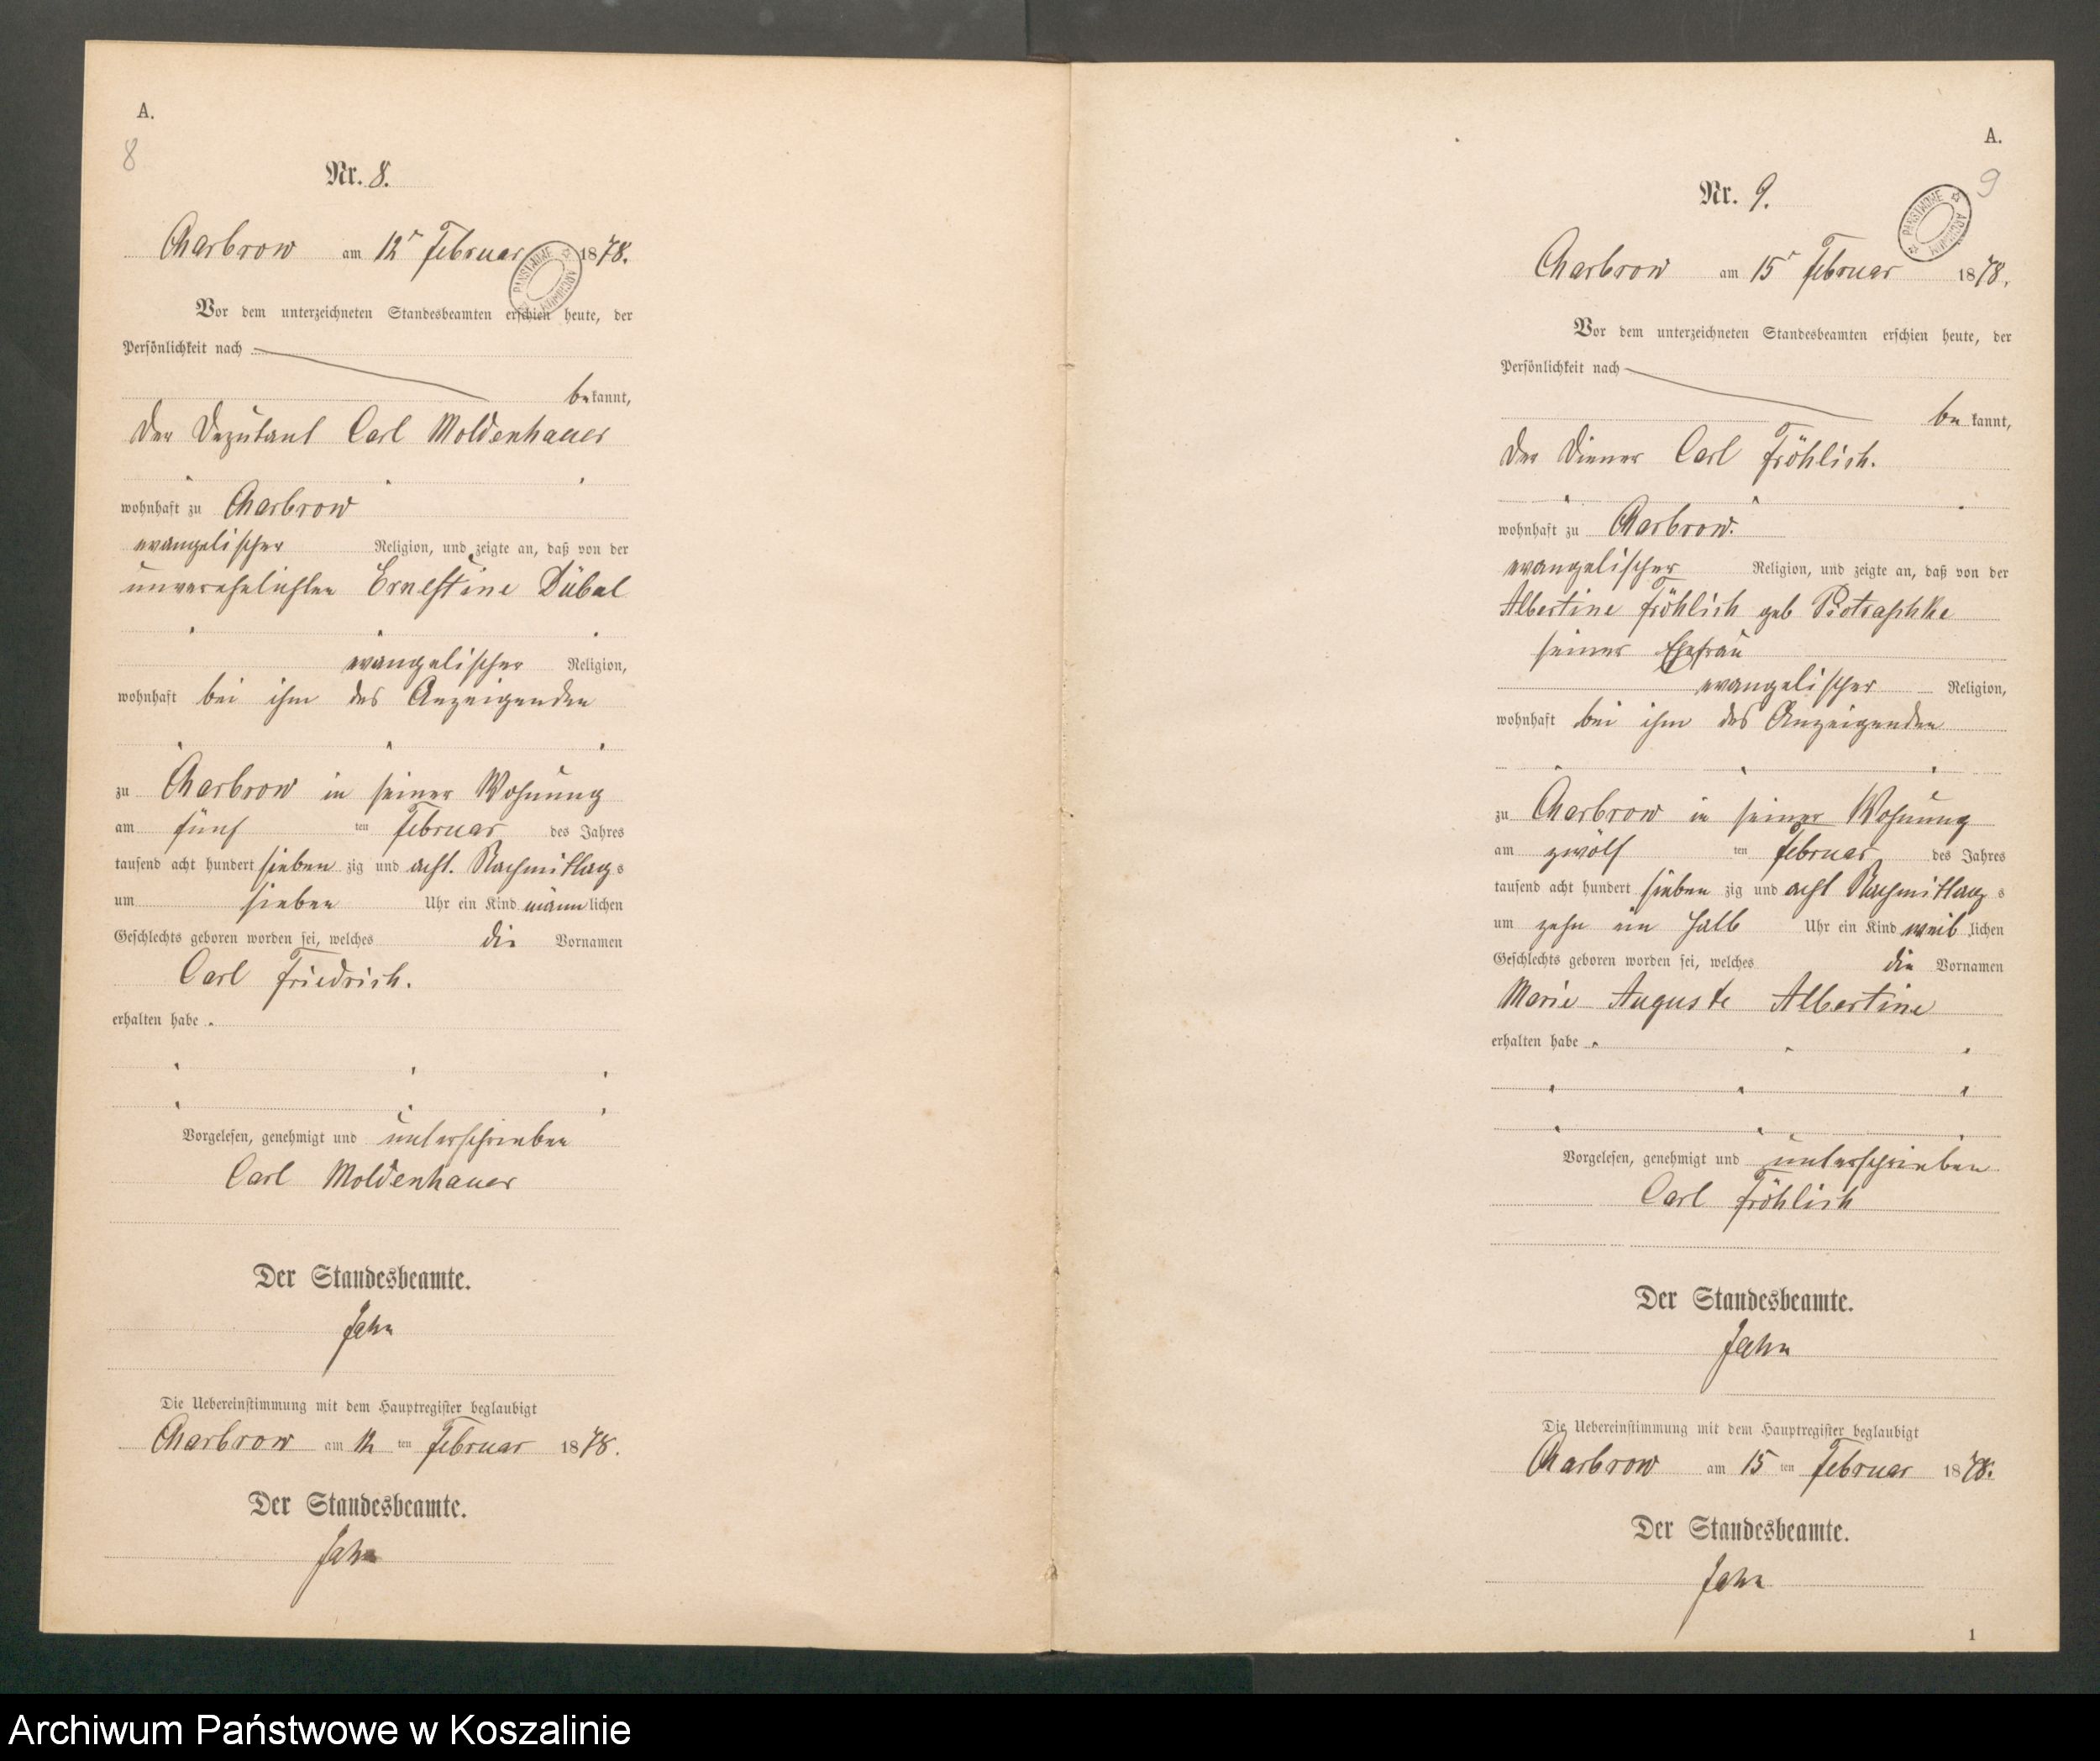 A.
8
Nr. 8.
Charbrow am 12ʳ Februar 1878.
PAŃSTWOWE ARCHIWUM
Vor dem unterzeichneten Standesbeamten erschien heute, der
Persönlichkeit nach
bekannt,
der Deputant Carl Moldenhauer
wohnhaft zu Charbrow
evangelischer Religion, und zeigte an, daß von der
unverehelichten Ernestine Dübal
evangelischer Religion,
wohnhaft bei ihm des Anzeigenden
zu Charbrow in seiner Wohnung
am fünf ten Februar des Jahres
tausend acht hundert sieben zig und acht. Nachmittags
um sieben Uhr ein Kind männlichen
Geschlechts geboren worden sei, welches die Vornamen
Carl Friedrich.
erhalten habe
Vorgelesen, genehmigt und unterschrieben
Carl Moldenhauer
Der Standesbeamte.
Jahn
Die Uebereinstimmung mit dem Hauptregister beglaubigt
Charbrow am 12 ten Februar 1878.
Der Standesbeamte.
Jahn
A.
9
Nr. 9.
PAŃSTWOWE ARCHIWUM
Charbrow am 15ʳ Februar 1878.
Vor dem unterzeichneten Standesbeamten erschien heute, der
Persönlichkeit nach
bekannt,
der Diener Carl Fröhlich.
wohnhaft zu Charbrow.
evangelischer Religion, und zeigte an, daß von der
Albertine Fröhlich geb
seiner Ehefrau
evangelischer Religion,
wohnhaft bei ihm des Anzeigenden
zu Charbrow in seiner Wohnung
am zwölf ten Februar des Jahres
tausend acht hundert sieben zig und acht Nachmittags
um zehn ein halb Uhr ein Kind weiblichen
Geschlechts geboren worden sei, welches die Vornamen
Marie Auguste Albertine
erhalten habe
Vorgelesen, genehmigt und unterschrieben
Carl Fröhlich
Der Standesbeamte.
Jahn
Die Uebereinstimmung mit dem Hauptregister beglaubigt
Charbrow am 15 ten Februar 1878.
Der Standesbeamte.
Jahn
1
Archiwum Państwowe w Koszalinie